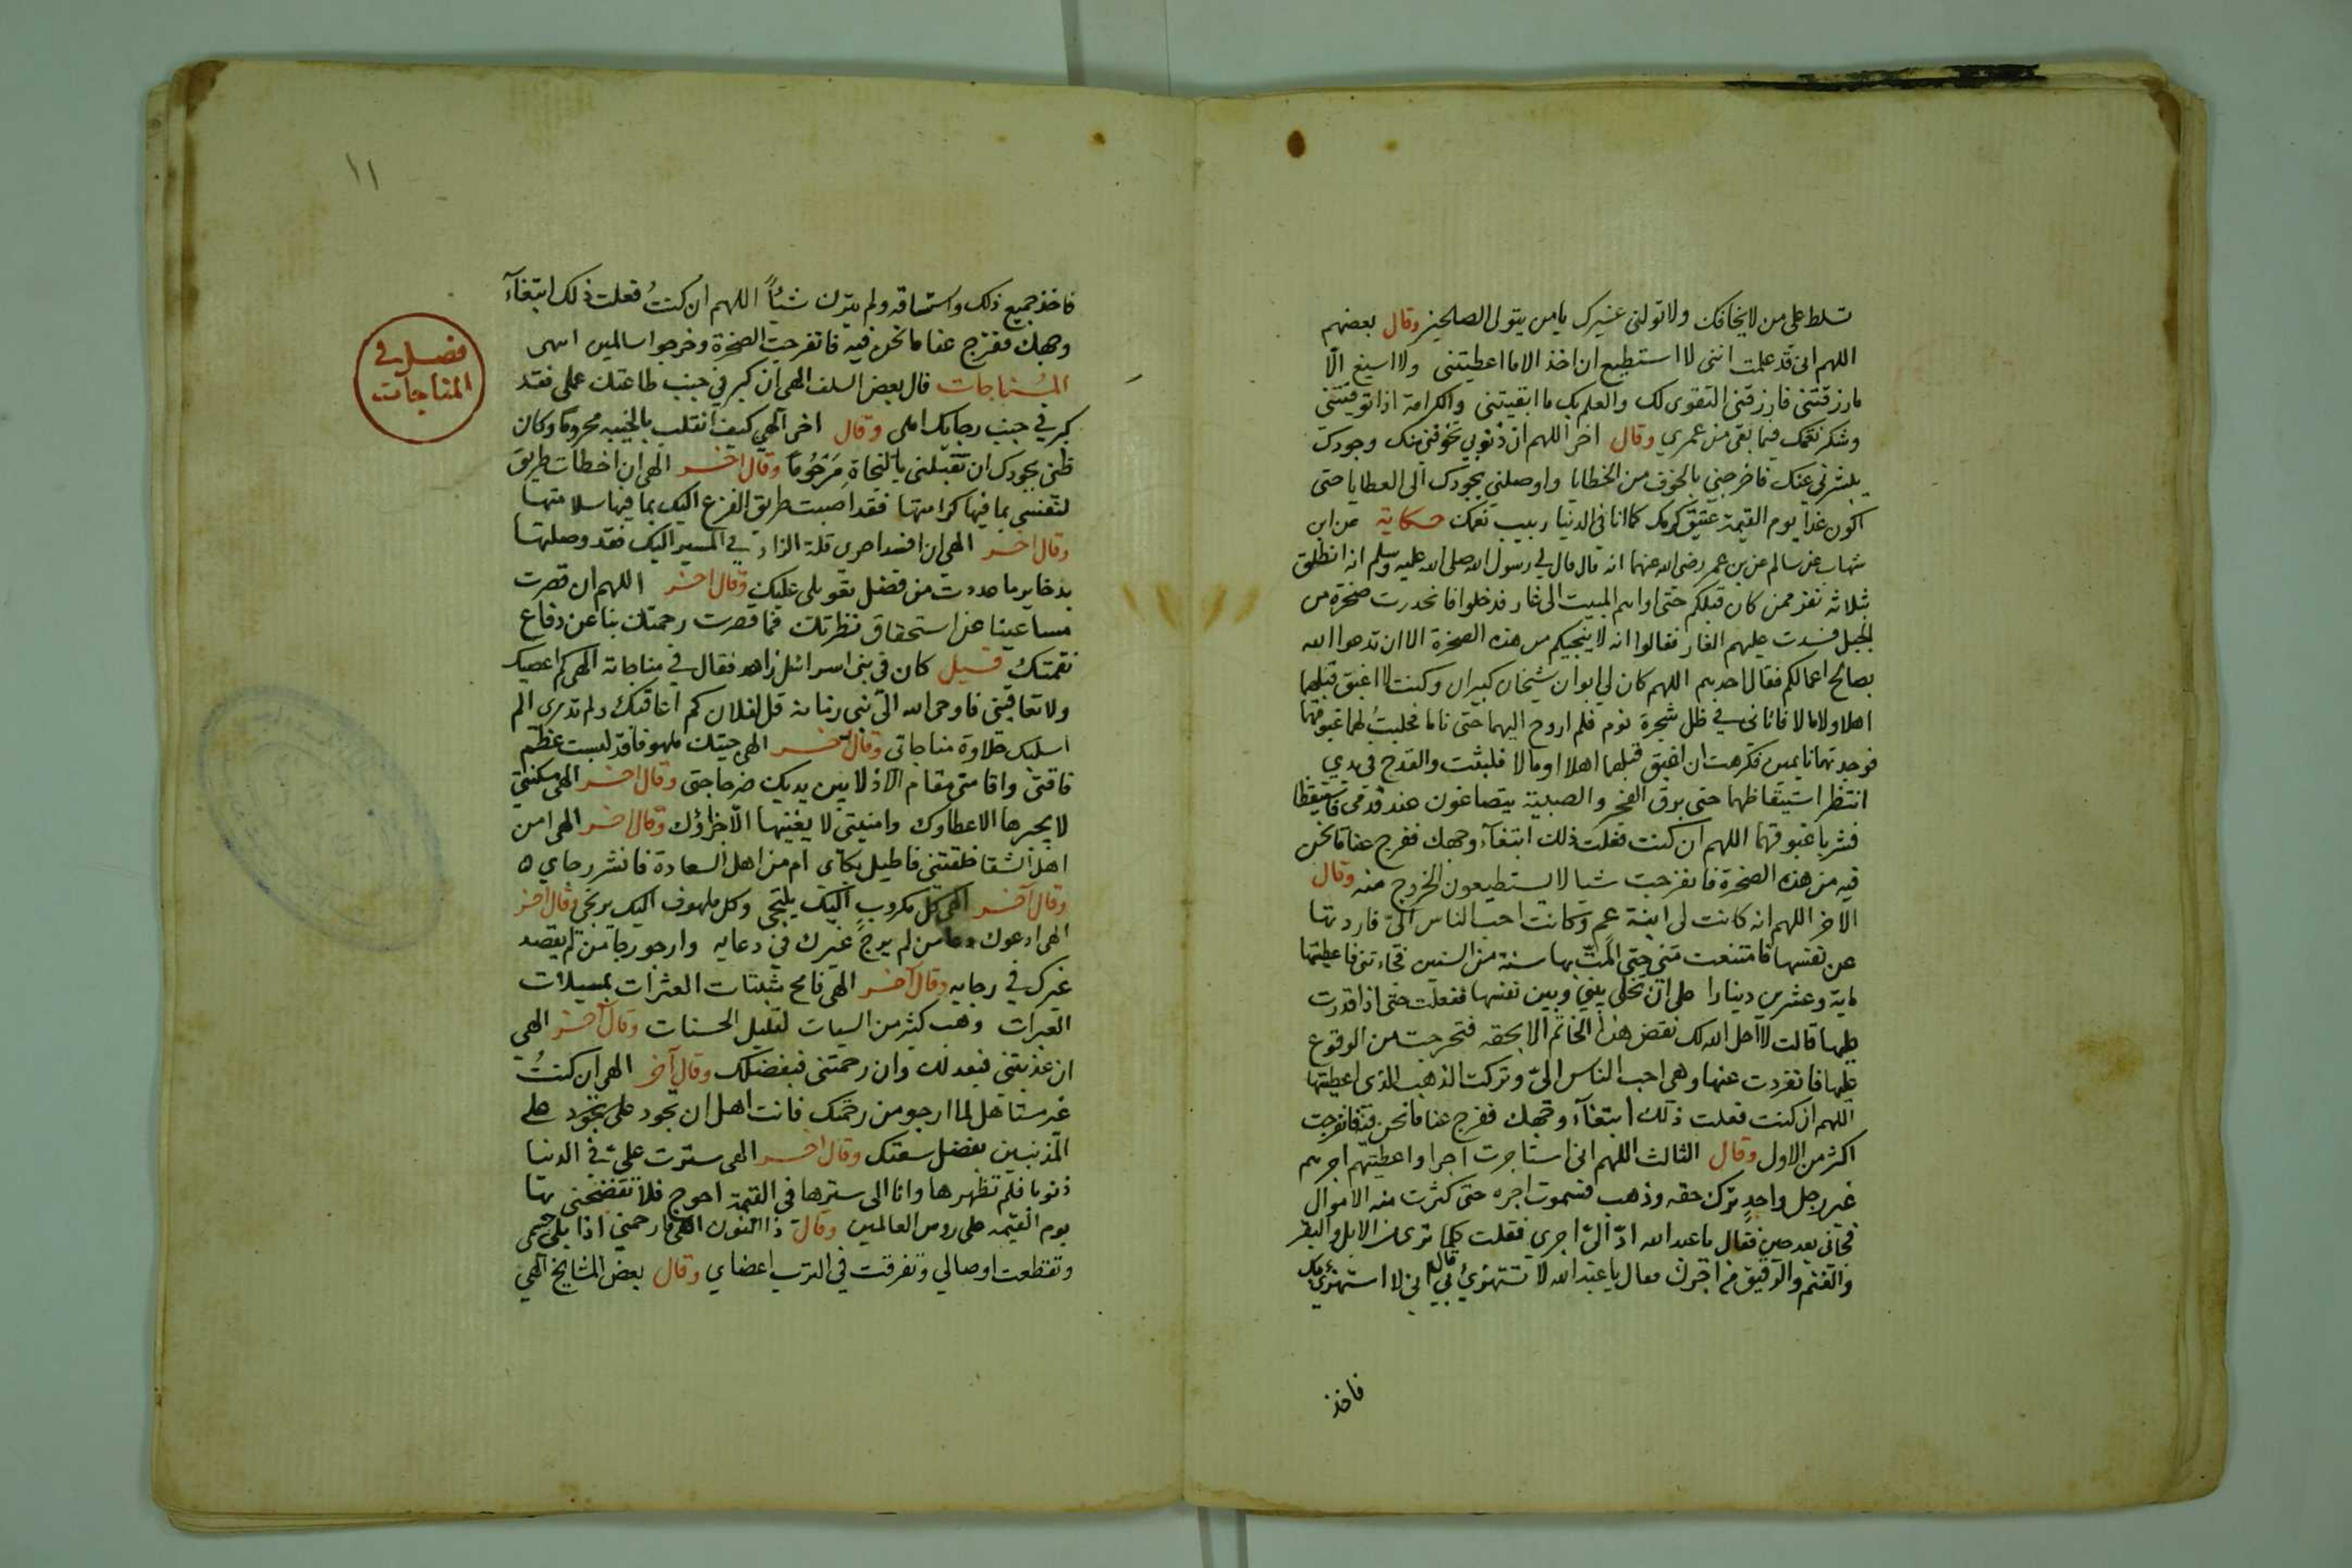 تسلط علي من لا يخافك ولا تولني غيرك يا من يتولى الصالحين وقال بعضهم
اللهم اني قد علمت انني لا استطيع ان اخذ الا ما اعطيتني ولا اسيغ الا
ما رزقتني فارزقني التقوى لك والعلم بك ما ابقيتني والكرامة اذا توفيتني
وشكر نعمك فيما بقى من عمري وقال اخر اللهم ان ذنوبي تخوفني منك وجودك
يبشرني عنك فاخرجني بالخوف من الخطايا واوصلني بجودك الى العطايا حتى
اكون غدا يوم القيمة عتيق كرمك كما انا في الدنيا ربيب نعمك حكاية عن ابن
شهاب عن سالم عن بن عمر رضي الله عنهما انه قال قال لي رسول الله صلى الله عليه وسلم انه انطلق
ثلاثة نفر ممن كان قبلكم حتى اواهم المبيت الى غار فدخلوا فانحدرت صخرة من
الجبل فسدت عليهم الغار فقالوا انه لا ينجيكم من هذه الصخرة الا ان تدعوا الله
بصالح اعمالكم فقال احدهم اللهم كان لي ابوان شيخان كبيران وكنت لا اغبق قبلهما
اهلا ولا مالا فانانى في ظل شجرة نوم فلم اروح اليهما حتى ناما فحلبت لهما غبوقهما
فوجدتهما نايمين فكرهت ان اغبق قبلهما اهلا او مالا فلبثت والقدح في يدي
انتظر استيقاظهما حتى برق الفجر والصبية يتضاغون عند قدمي فاستيقظا
فشربا غبوقهما اللهم ان كنت فعلت ذلك ابتغآء وجهك ففرج عنا ما نحن
فيه من هذه الصخرة فانفرجت شيا لا يستطيعون الخروج منه وقال
الاخر اللهم انه كانت لي ابنة عم وكانت احب الناس الي فاردتها
عن نفسها فامتنعت مني حتى المت بها سنة من السنين فجاءتني فاعطيتها
ماية وعشرين دينارا على ان تخلي بيني وبين نفسها ففعلت حتى اذا قدرت
عليها قالت لا احل الله لك نقض هذا الخاتم الا بحقه فتحرجت من الوقوع
عليها فانفردت عنها وهي احب الناس الي وتركت الذهب الذي اعطيتها
اللهم ان كنت فعلت ذلك ابتغآء وجهك ففرج عنا ما نحن فيه فانفرجت
اكثر من الاول وقال الثالث اللهم اني استاجرت اجرا واعطيتهم اجرهم
غير رجل واحد ترك حقه وذهب فنموت اجره حتى كثرت منه الاموال
فجاني بعد حين فقال يا عبد الله ادّ اليّ اجري فقلت كلما ترى من الابل والبقر
والغنم والرقيق من اجرك فقال يا عبد الله لا تستهزئ بي قال اني لا استهزئ بك
فاخذ
١١
فاخذ جميع ذلك واستاقه ولم يترك شيئاً اللهم ان كنتُ فعلت ذلك ابتغآء
وجهك ففرج عنا ما نحن فيه فانفرجت الصخرة وخرجوا سالمين انتهى
فصل في
المناجات
المناجات قال بعض السلف الهي ان كبر في جنب طاعتك عملي فقد
كبر في جنب رجايك املي وقال اخر الهي كيف انقلب بالخيبة محروما وكان
ظني بجودك ان تقبلني بالنجاة مَرْحُوماً وقال اخر الهي ان اخطات طريق
لنفسي بما فيها كرامتها فقد اصبت طريق الفزع اليك بما فيها سلامتها
وقال اخر الهي ان اقعدني قلة الزاد في المسير اليك فقد وصلتها
بذخاير ما عددت من فضل تعويلي عليك وقال اخر اللهم ان قصرت
مساعينا عن استحقاق نظرتك فما قصرت رحمتك بنا عن دفاع
نقمتك قيل كان في بني اسرائل زاهد فقال في مناجاته الهي كم اعصيك
ولا تعاقبني فاوحى الله الى نبي زمانه قل لفلان كم اعاقبك ولم تدري الم
اسلبك حلاوة مناجاتي وقال اخر الهي جيتك ملهوفا قد لبست عظم
فاقتي واقامتي مقام الاذلا بين يديك ضر حاجتي وقال اخر الهي مسكنتي
لا يجبرها الا عطاوك وامنيتي لا يغنيها الا جزاؤك وقال اخر الهي امن
اهل الشقا خلقتني فاطيل بكآئي ام من اهل السعادة فانشر رجاي ه
وقال آخر الهي كل مكروب اليك يلتجي وكل ملهوف اليك يرتجي وقال اخر
الهي ادعوك دعا من لم يرج غيرك في دعايه وارجو رجا من لم يقصد
غيرك في رجايه وقال آخر الهي فامح مثبتات العثرات بمسبلات
العبرات وهب كثير من السيات لقليل الحسنات وقال آخر الهي
ان عذبتني فبعدلك وان رحمتني فبفضلك وقال آخر الهي ان كنتُ
غير مستاهل لما ارجو من رحمتك فانت اهل ان تجود علي بجود على
المذنبين بفضل سعتك وقال اخر الهي سترت عليّ في الدنيا
ذنوبا فلم تظهرها وانا الى سترها في القيمة احوج فلا تفضحني بها
يوم القيمه على روس العالمين وقال ذا النون الهي فارحمني اذا بلي جسمي
وتقطعت اوصالي وتفرقت في الترب اعضاي وقال بعض المشايخ الهي